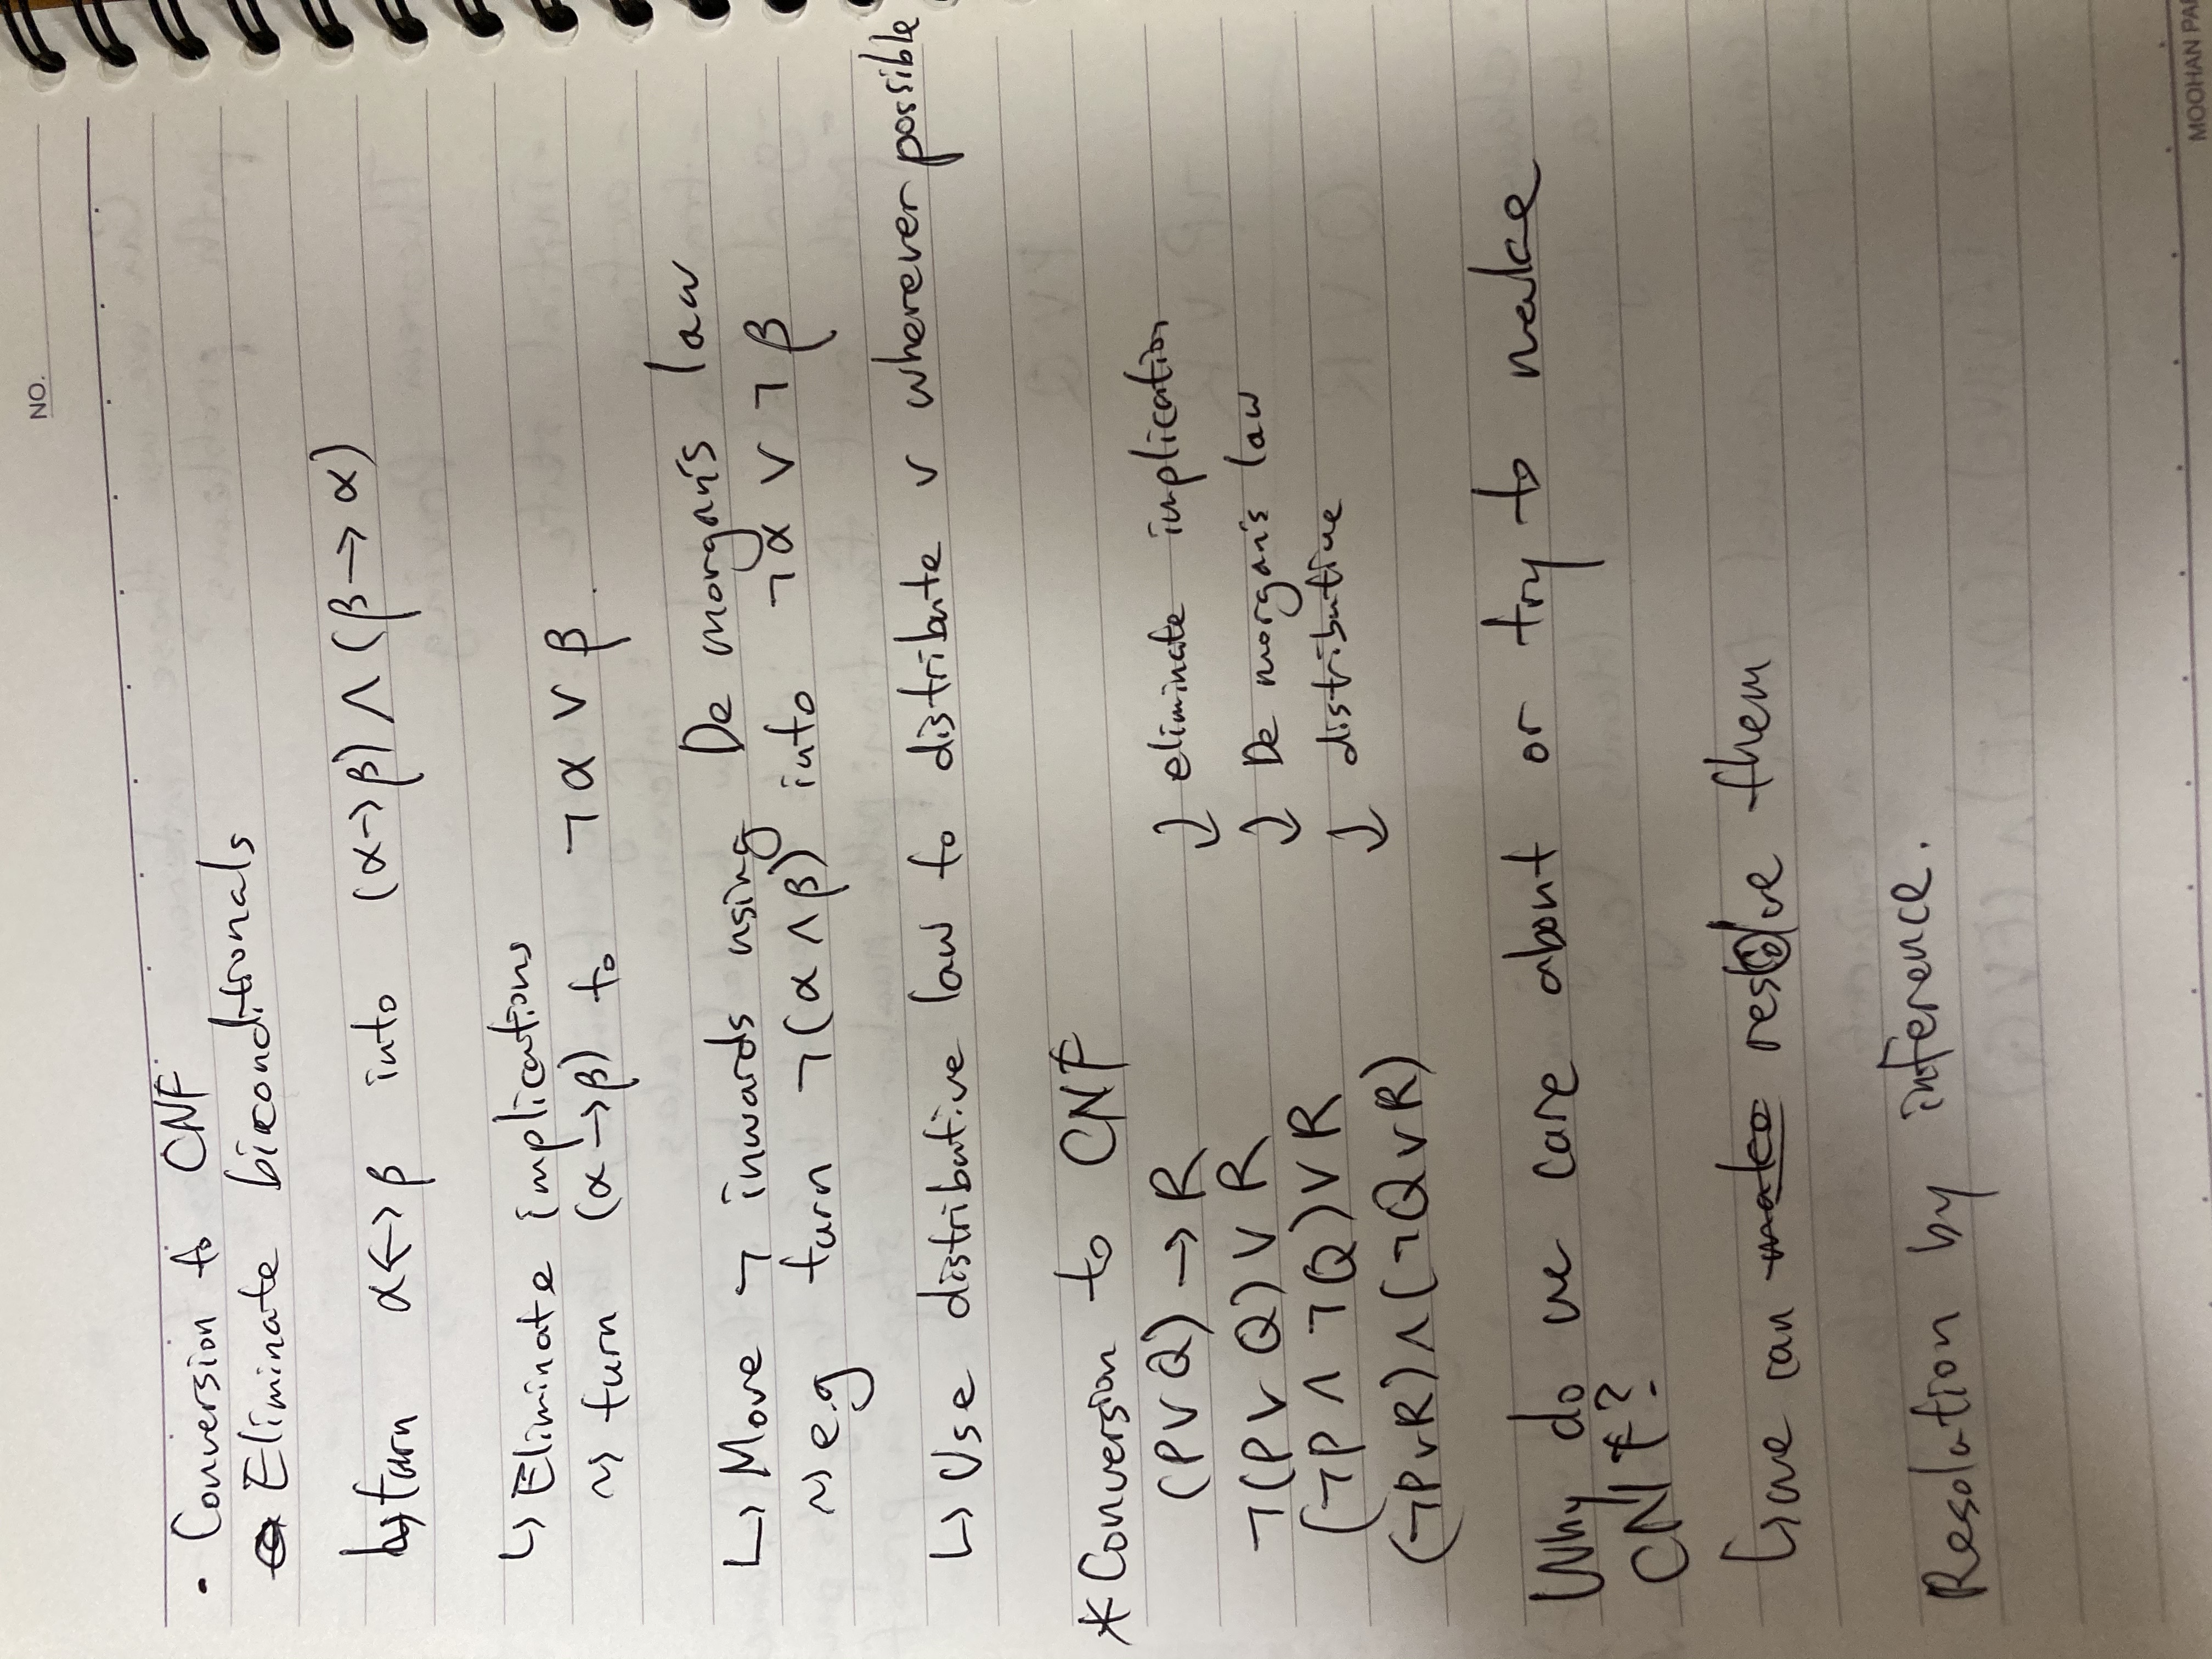 NO.
· Conversion to CNF
Eliminate biconditionals
↳ turn α↔β into (α→β) ∧ (β→α)
↳ Eliminate implications
⤳ turn (α→β) to ¬α ∨ β.
↳ Move ¬ inwards using De morgan's law
⤳ e.g turn ¬(α∧β) into ¬α ∨ ¬β
↳ Use distributive law to distribute ∨ wherever possible
* Conversion to CNF
(P∨Q) → R ↓ eliminate implication
¬(P∨Q) ∨ R ↓ De morgan's law
(¬P ∧ ¬Q) ∨ R ↓ distributive
(¬P∨R) ∧ (¬Q∨R)
Why do we care about or try to make
CNF?
↳ we can make resolve them
Resolation by inference.